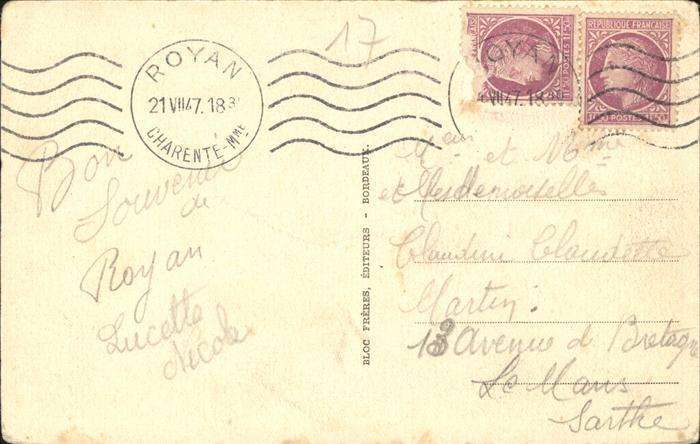 17
ROYAN
21 VII 47. 18 3
CHARENTE-Mme
ROYAN
VII 47. 18 3
REPUBLIQUE FRANÇAISE
POSTES
Bon
Souvenir
de
Royan
Lucette
Nicole
BLOC FRÈRES, ÉDITEURS - BORDEAUX.
et Mme
et Mesdemoiselles
Claudine Claudette
Martin:
Avenue de Bretagne
Le Mans
Sarthe